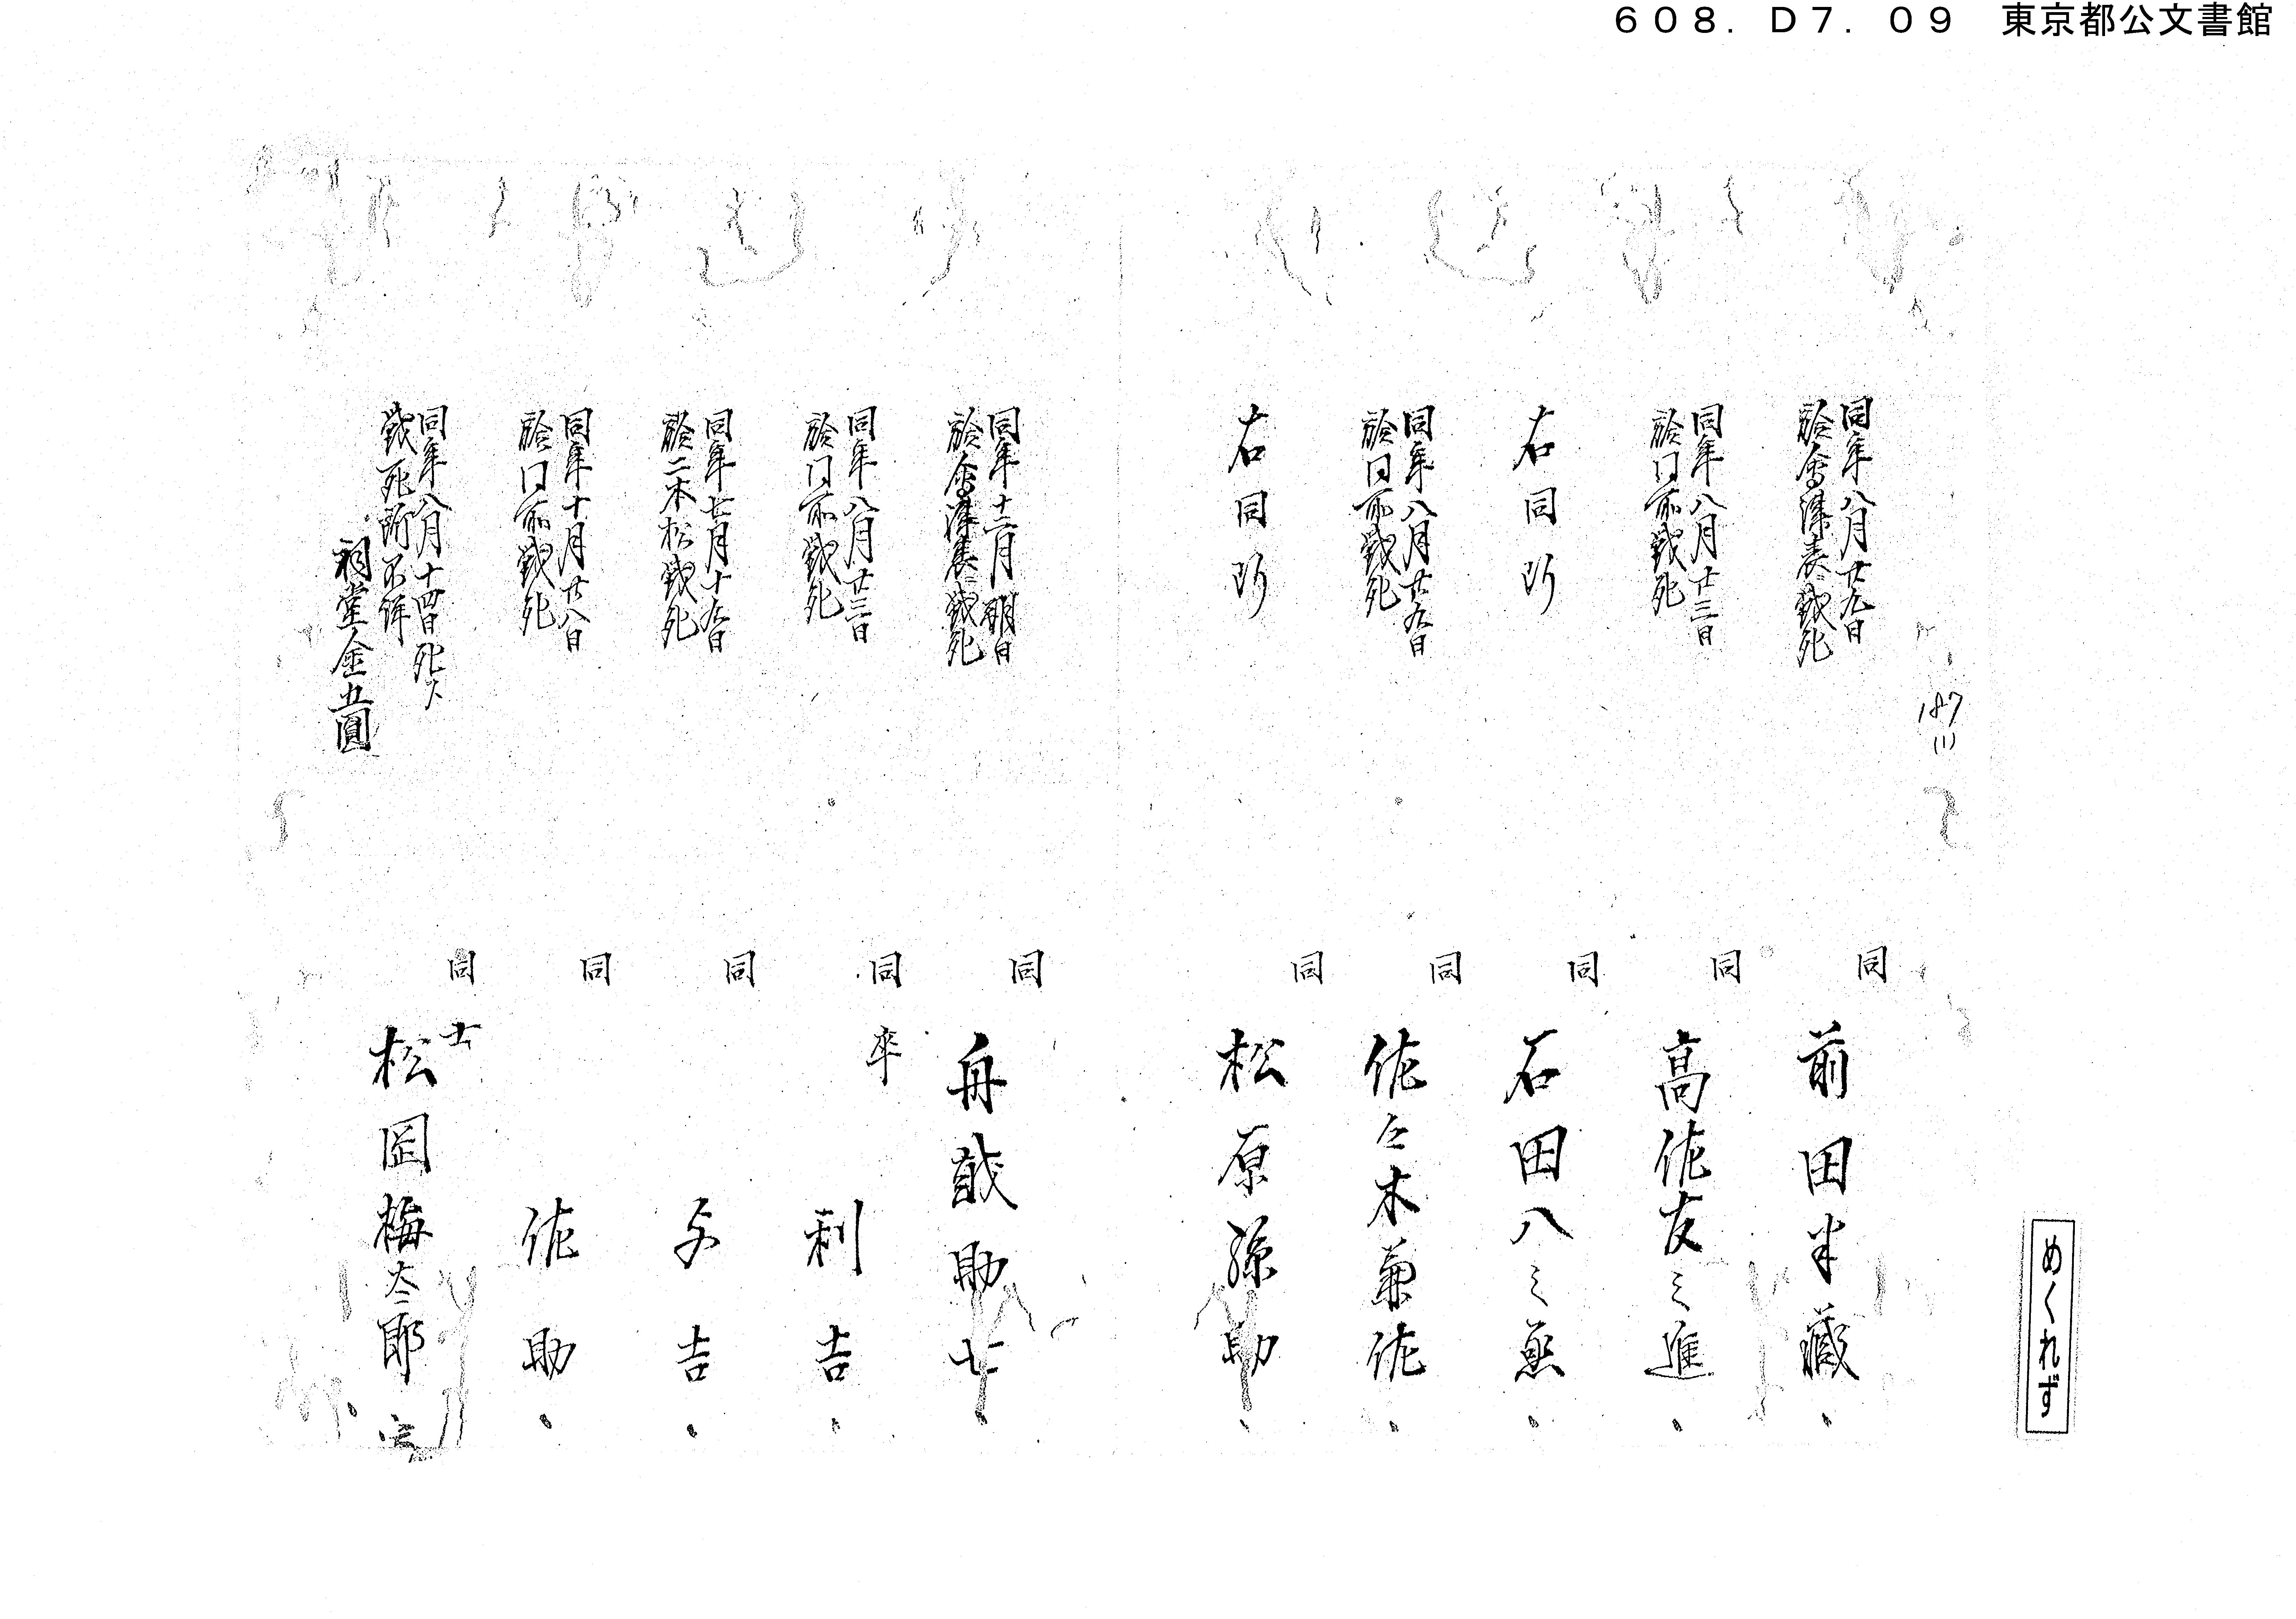 608. D7. 09 東京都公文書館
同年八月廿九日
於會津表戦死
同
前田半藏
同年八月廿三日
於同所戦死
同
高佐友之進
右同所
同
石田八之
同年八月廿九日
於同所戦死
同
佐々木兼佐
右同所
同
松原孫助
187
(1)
同年十二月朔日
於會津表戦死
同
舟 助七
同年八月廿三日
於同所戦死
同
卒
利吉
同年七月十九日
於二本松戦死
同
与吉
同年十月廿八日
於同所戦死
同
佐助
同年八月十四日死ス
戦死所不詳
祠堂金五圓
同
士
松岡梅太郎
めくれず